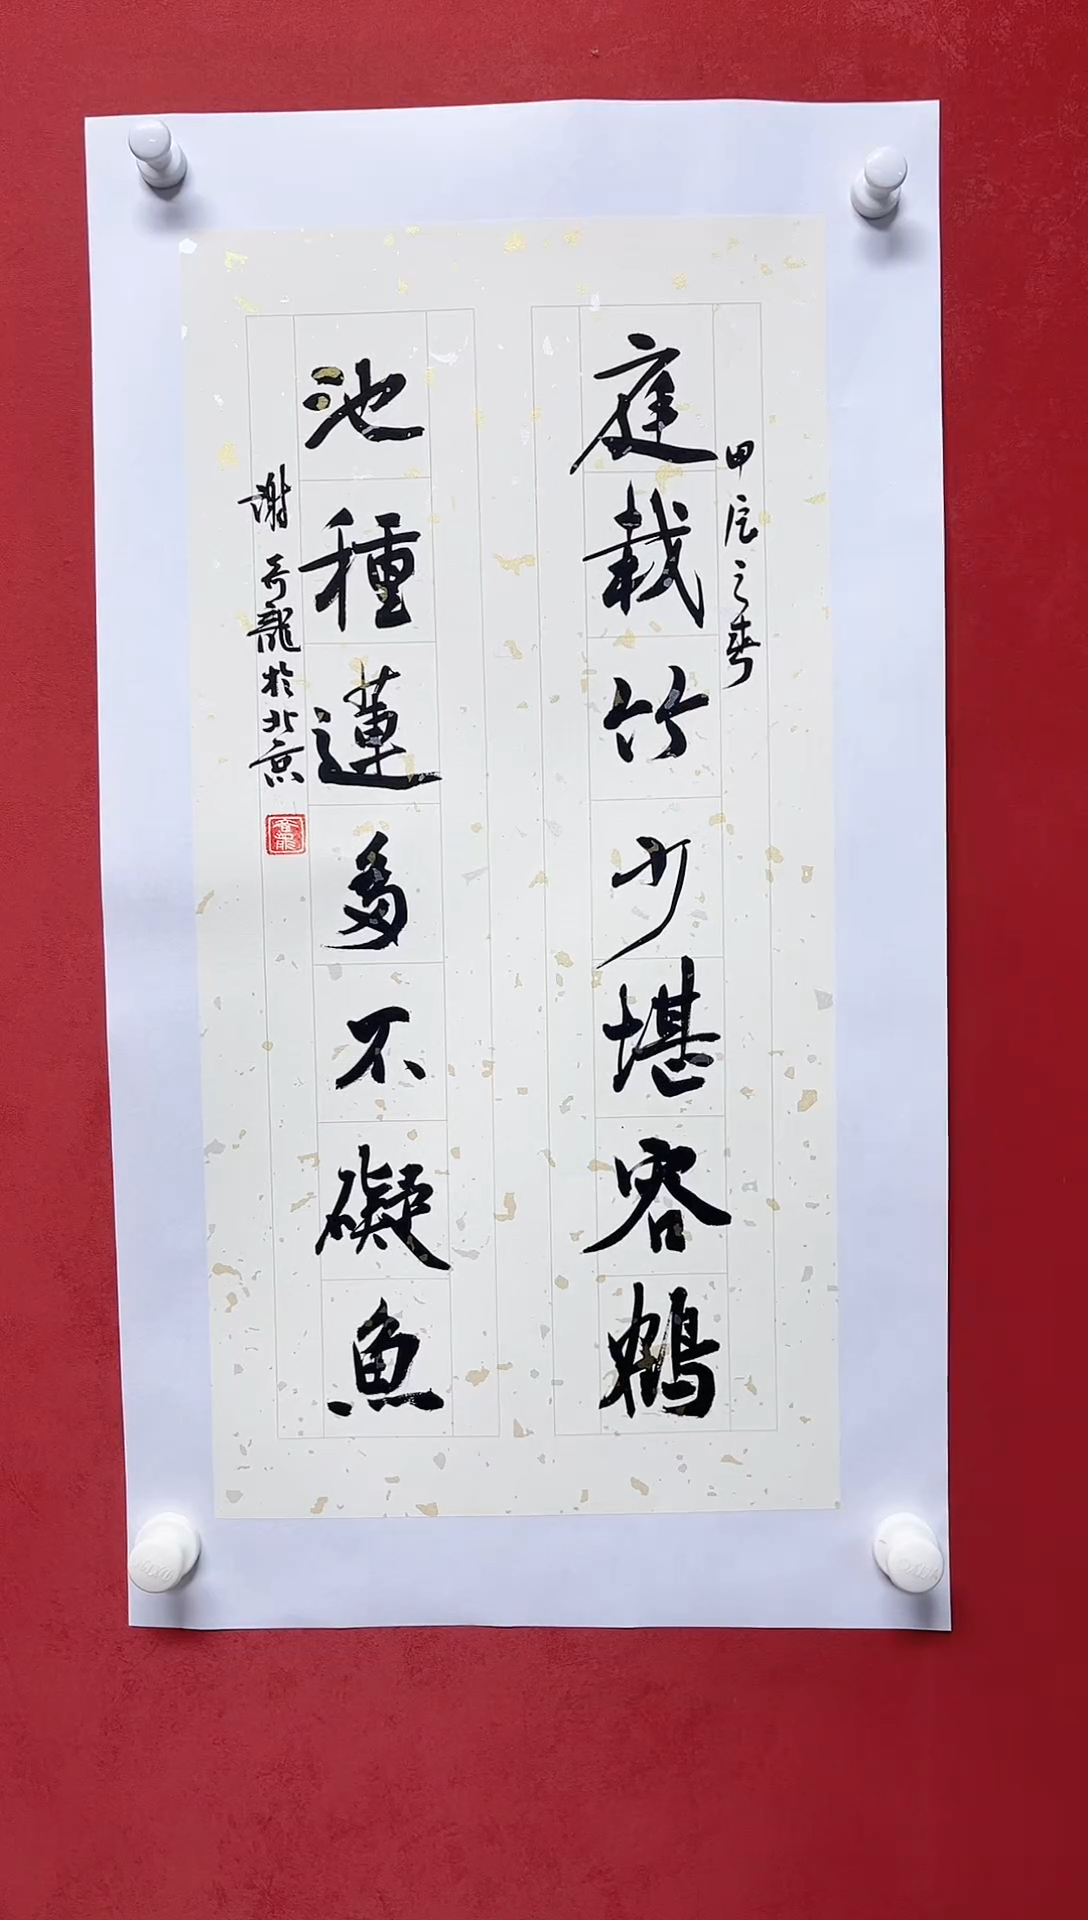 甲辰之春
庭栽竹少堪容鶴
池種蓮多不礙魚
謝奇龍於北京